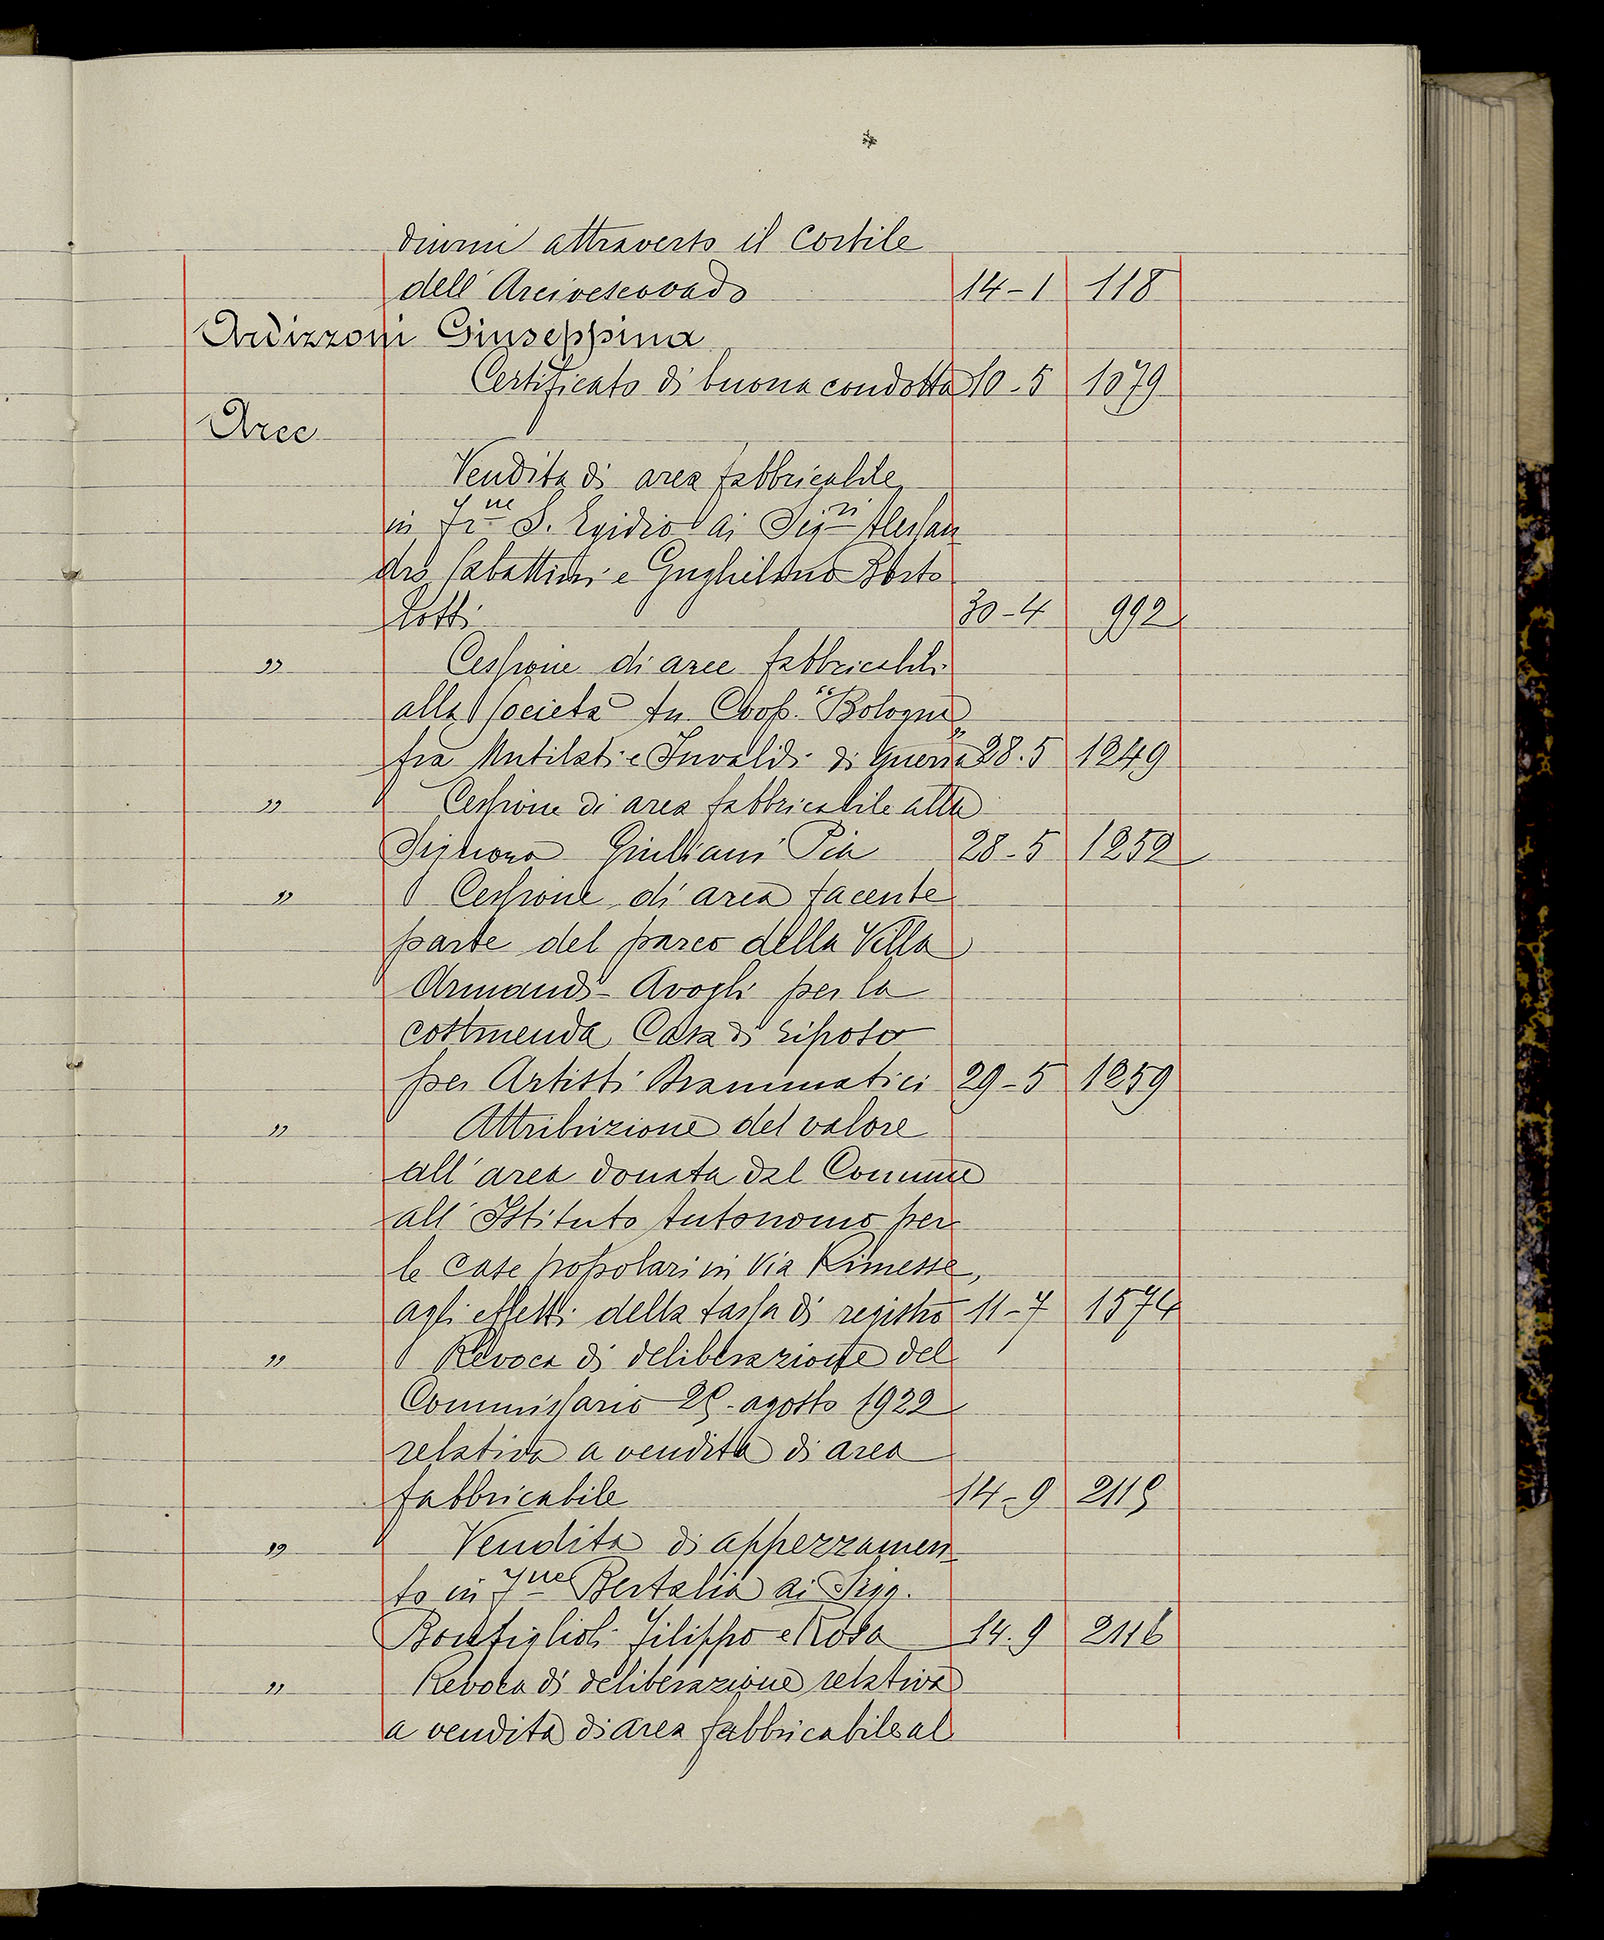 diurni attraverso il cortile
dell'Arcivescovado 14-1 118
Ardizzoni Giuseppina
Certificato di buona condotta 10-5 1079
Aree
Vendita di area fabbricabile
in Fr.ne S. Egidio ai Sig.ri Alessan
dro Sabattini e Guglielmo Borto
lotti 30-4 992
" Cessione di aree fabbricabili
alla Società An. Coop. "Bologna"
fra Mutilati e Invalidi di guerra 28.5 1249
" Cessione di area fabbricabile alla
Signora Giuliani Pia 28-5 1252
" Cessione di area facente
parte del parco della Villa
Armandi-Avogli per la
costruenda Casa di riposo
per Artisti Drammatici 29-5 1259
" Attribuzione del valore
all'area donata dal Comune
all'Istituto Autonomo per
le case popolari in Via Rimesse,
agli effetti della tassa di registro 11-7 1574
" Revoca di deliberazione del
Commissario 25 agosto 1922
relativa a vendita di area
fabbricabile 14-9 2115
" Vendita di appezzamen
to in F.ne Bertalia ai Sigg.
Bonfiglioli Filippo e Rosa 14.9 2116
" Revoca di deliberazione relativa
a vendita di area fabbricabile al